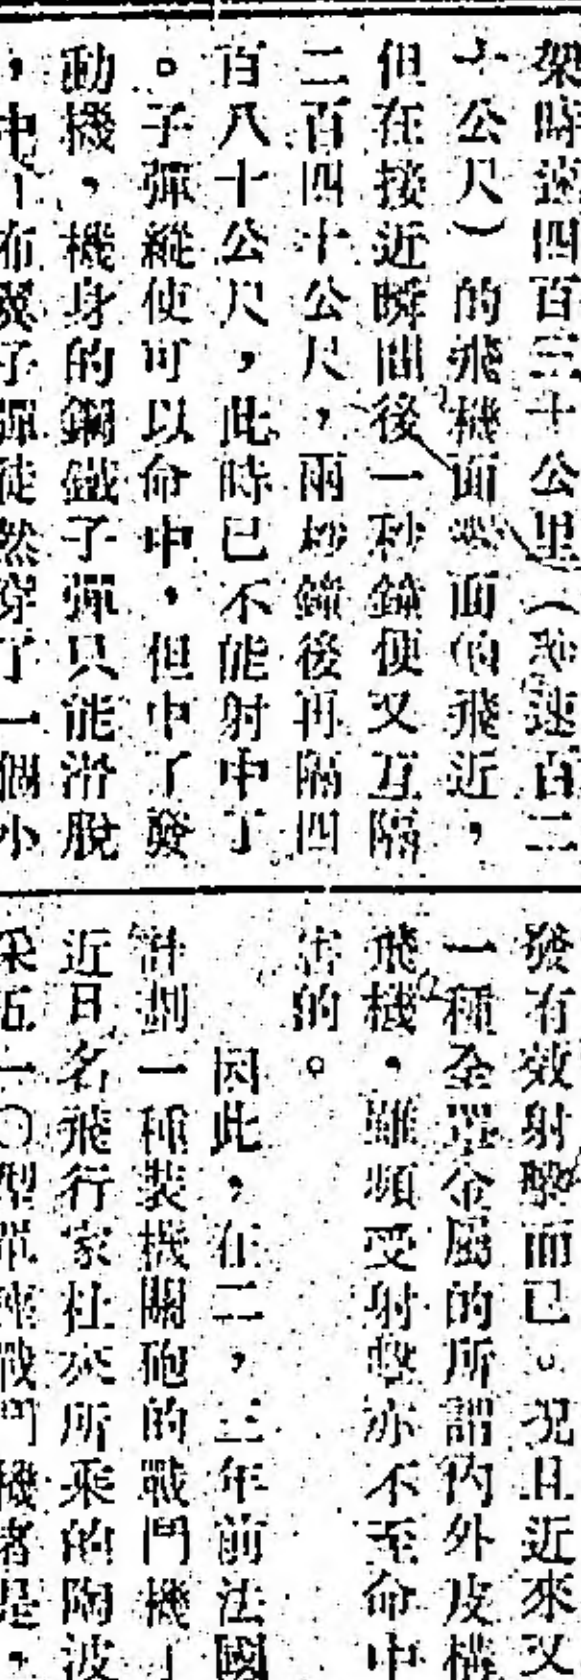 架時速四百三十公里（秒速百二
十公尺）的飛機面對面的飛近，
但在接近瞬間後一秒鐘便又互隔
二百四十公尺，兩秒鐘後再隔四
百八十公尺，此時已不能射中了
。子彈縱使可以命中，但中了發
動機，機身的鋼鐵子彈只能滑脫
，中了布翼子彈徒然穿了一個小
發有效射擊而已。況且近來又
一種全單金屬的所謂內外皮構
飛機，雖頻受射擊亦不至命中
害的。
因此，在二，三年前法國
計劃一種裝機關砲的戰鬥機」
近日名飛行家杜 所乘的陶波
五一〇型單座戰鬥機者是，